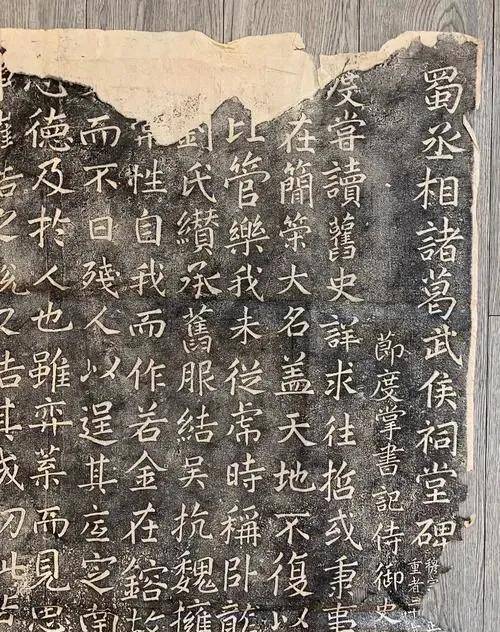 蜀丞相諸葛武侯祠堂碑
節度掌書記侍御史
度嘗讀舊史詳求往哲或秉事
在簡策大名蓋天地不復以
比管樂我未從虖時稱臥龍
劉氏纘承舊服結吴抗魏擁
常性自我而作若金在鎔故
而不曰殘人以逞其底定南
德及於人也雖弈葉而見思
浩之説又詰其成功此皆